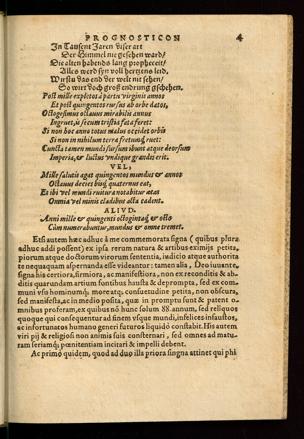 PROGNOSTICON 4
In Tausent Jaren viser art
Der Himmel nie gesehen ward/
Die alten habends lang propheceit/
Alles werd syn voll hertzens leid,
Wirstu das end der welt nit sehen/
So wirt doch groß endrung geschehen.
Post mille expletos à partu virginis annos
Et post quingentos rursus ab orbe datos,
Octogesimus octauus mirabilis annus
Ingruet, is secum tristia fata feret:
Si non hoc anno totus malus occidet orbis
Si non in nihilum terra fretumq́; ruet:
Cuncta tamen mundi sursum ibunt atque deorsum
Imperia, & luctus vndique grandis erit.
VEL,
Mille salutis agat quingentos mundus & annos
Octauus decies huic quaternus eat,
Et ibi vel mundi ruitura notabitur ætas
Omnia vel minis cladibus acta cadent.
ALIVD.
Anni mille & quingenti octogintaq; & octo
Cùm numerabuntur, mundus & omne tremet.
Etsi autem hæc adhuc à me commemorata signa ( quibus plura
adhuc addi possent) ex ipsa rerum natura & artibus eximijs petita,
piorum atque doctorum virorum sententia, iudicio atque authorita
te nequaquam aspernanda esse videantur: tamen alia, Deo iuuante,
signa his certiora, firmiora, ac manifestiora, non ex reconditis & ab
ditis quarundam artium fontibus hausta & deprompta, sed ex com
muni vsu hominumq́; more atq; consuetudine petita, non obscura,
sed manifesta, ac in medio posita, quæ in promptu sunt & patent o-
mnibus proferam, ex quibus no hunc solum 88. annum, sed reliquos
quoque qui consequentur ad finem vsque mundi, infelices infaustos,
ac infortunatos humano generi futuros liquidò constabit. His autem
viri pij & religiosi non animis suis consternari, sed omnes ad matu-
ram seriamq́; pœnitentiam incitari & impelli debent.
Ac primò quidem, quod ad duo illa priora singna attinet qui phi